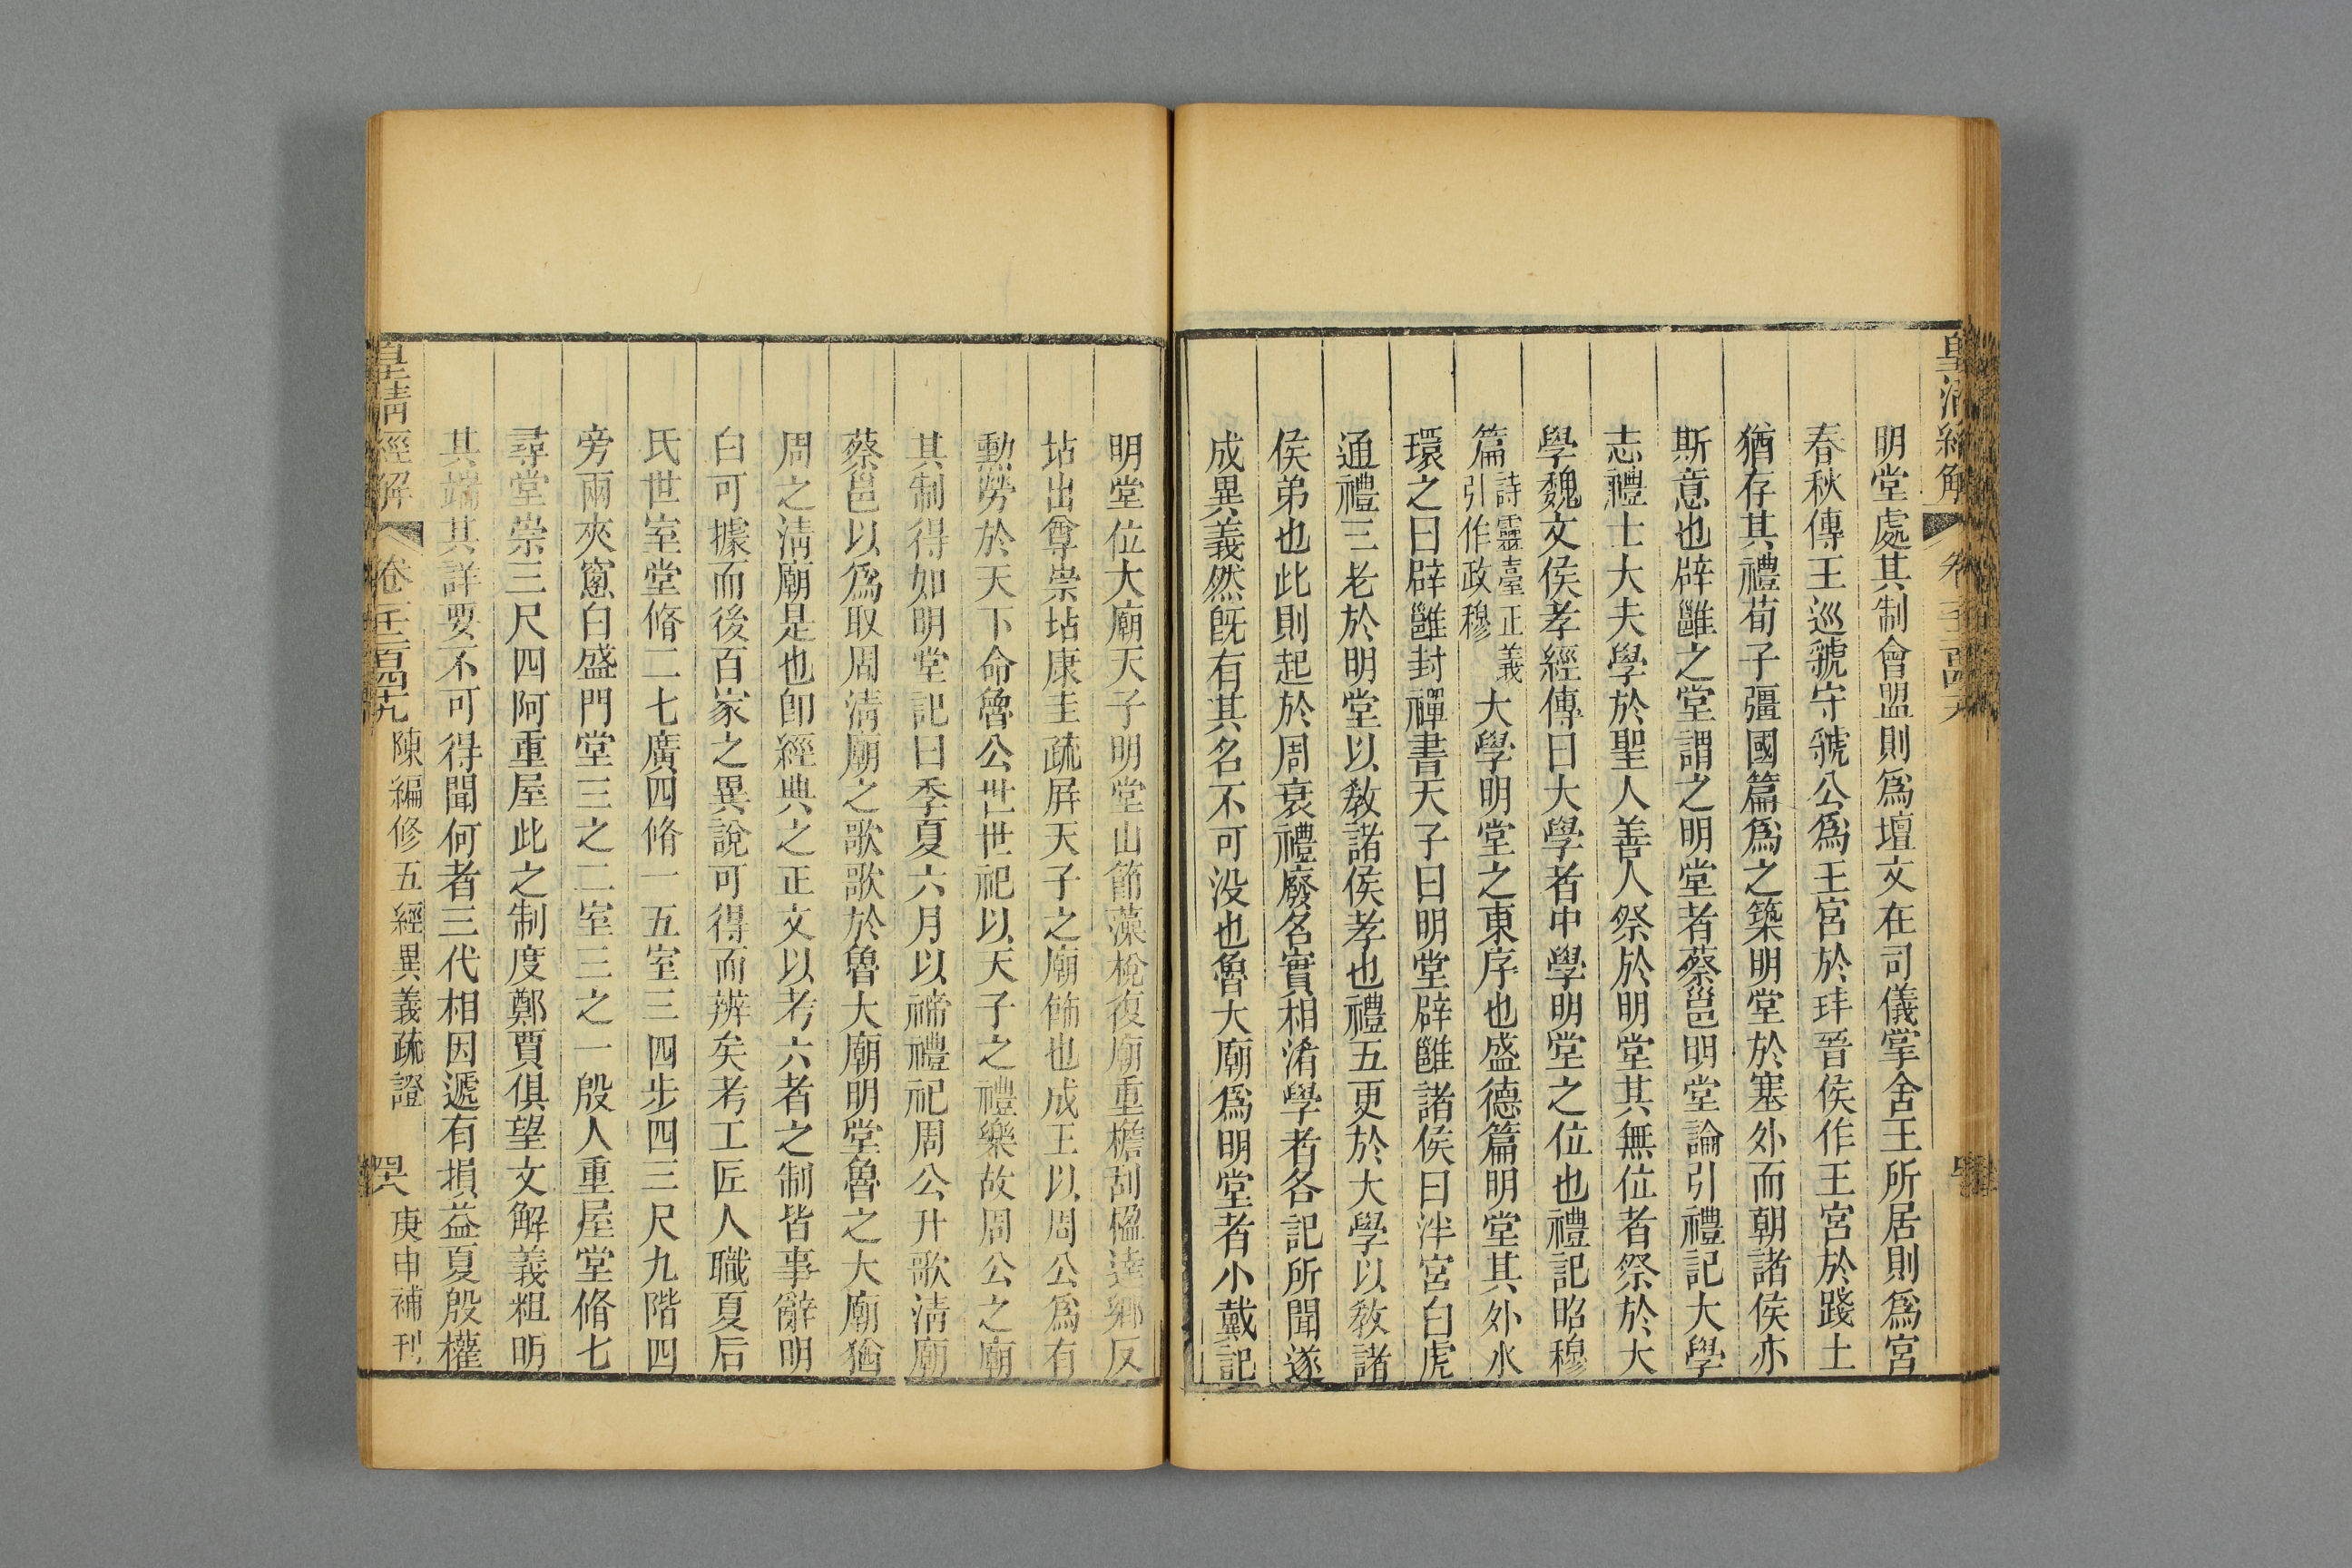 明堂處其制會盟則爲壇文在司儀掌舍王所居則爲宮
春秋傳王巡虢守虢公爲王宮於玤晉侯作王宮於踐土
猶存其禮荀子彊國篇爲之築明堂於塞外而朝諸侯亦
斯意也辟雝之堂謂之明堂者蔡邕明堂論引禮記大學
志禮士大夫學於聖人善人祭於明堂其無位者祭於大
學魏文侯孝經傳曰大學者中學明堂之位也禮記昭穆
篇詩靈臺正義引作政穆大學明堂之東序也盛德篇明堂其外水
環之曰辟雝封禪書天子曰明堂辟雝諸侯曰泮宮白虎
通禮三老於明堂以敎諸侯孝也禮五更於大學以敎諸
侯弟也此則起於周衰禮廢名實相淆學者各記所聞遂
成異義然旣有其名不可没也魯大廟爲明堂者小戴記
明堂位大廟天子明堂山節藻梲復廟重檐刮楹達鄉反
坫出尊崇坫康圭疏屛天子之廟飾也成王以周公爲有
勲勞於天下命魯公世世祀以天子之禮樂故周公之廟
其制得如明堂記曰季夏六月以禘禮祀周公升歌淸廟
蔡邕以爲取周淸廟之歌歌於魯大廟明堂魯之大廟猶
周之淸廟是也卽經典之正文以考六者之制皆事辭明
白可據而後百家之異說可得而辨矣考工匠人職夏后
氏世室堂脩二七廣四脩一五室三四步四三尺九階四
旁兩夾窻白盛門堂三之二室三之一殷人重屋堂脩七
尋堂崇三尺四阿重屋此之制度鄭賈俱望文解義粗明
其端其詳要不可得聞何者三代相因遞有損益夏殷權
皇淸經解 卷一千二百四十九 陳編修五經異義疏證 庚申補刊